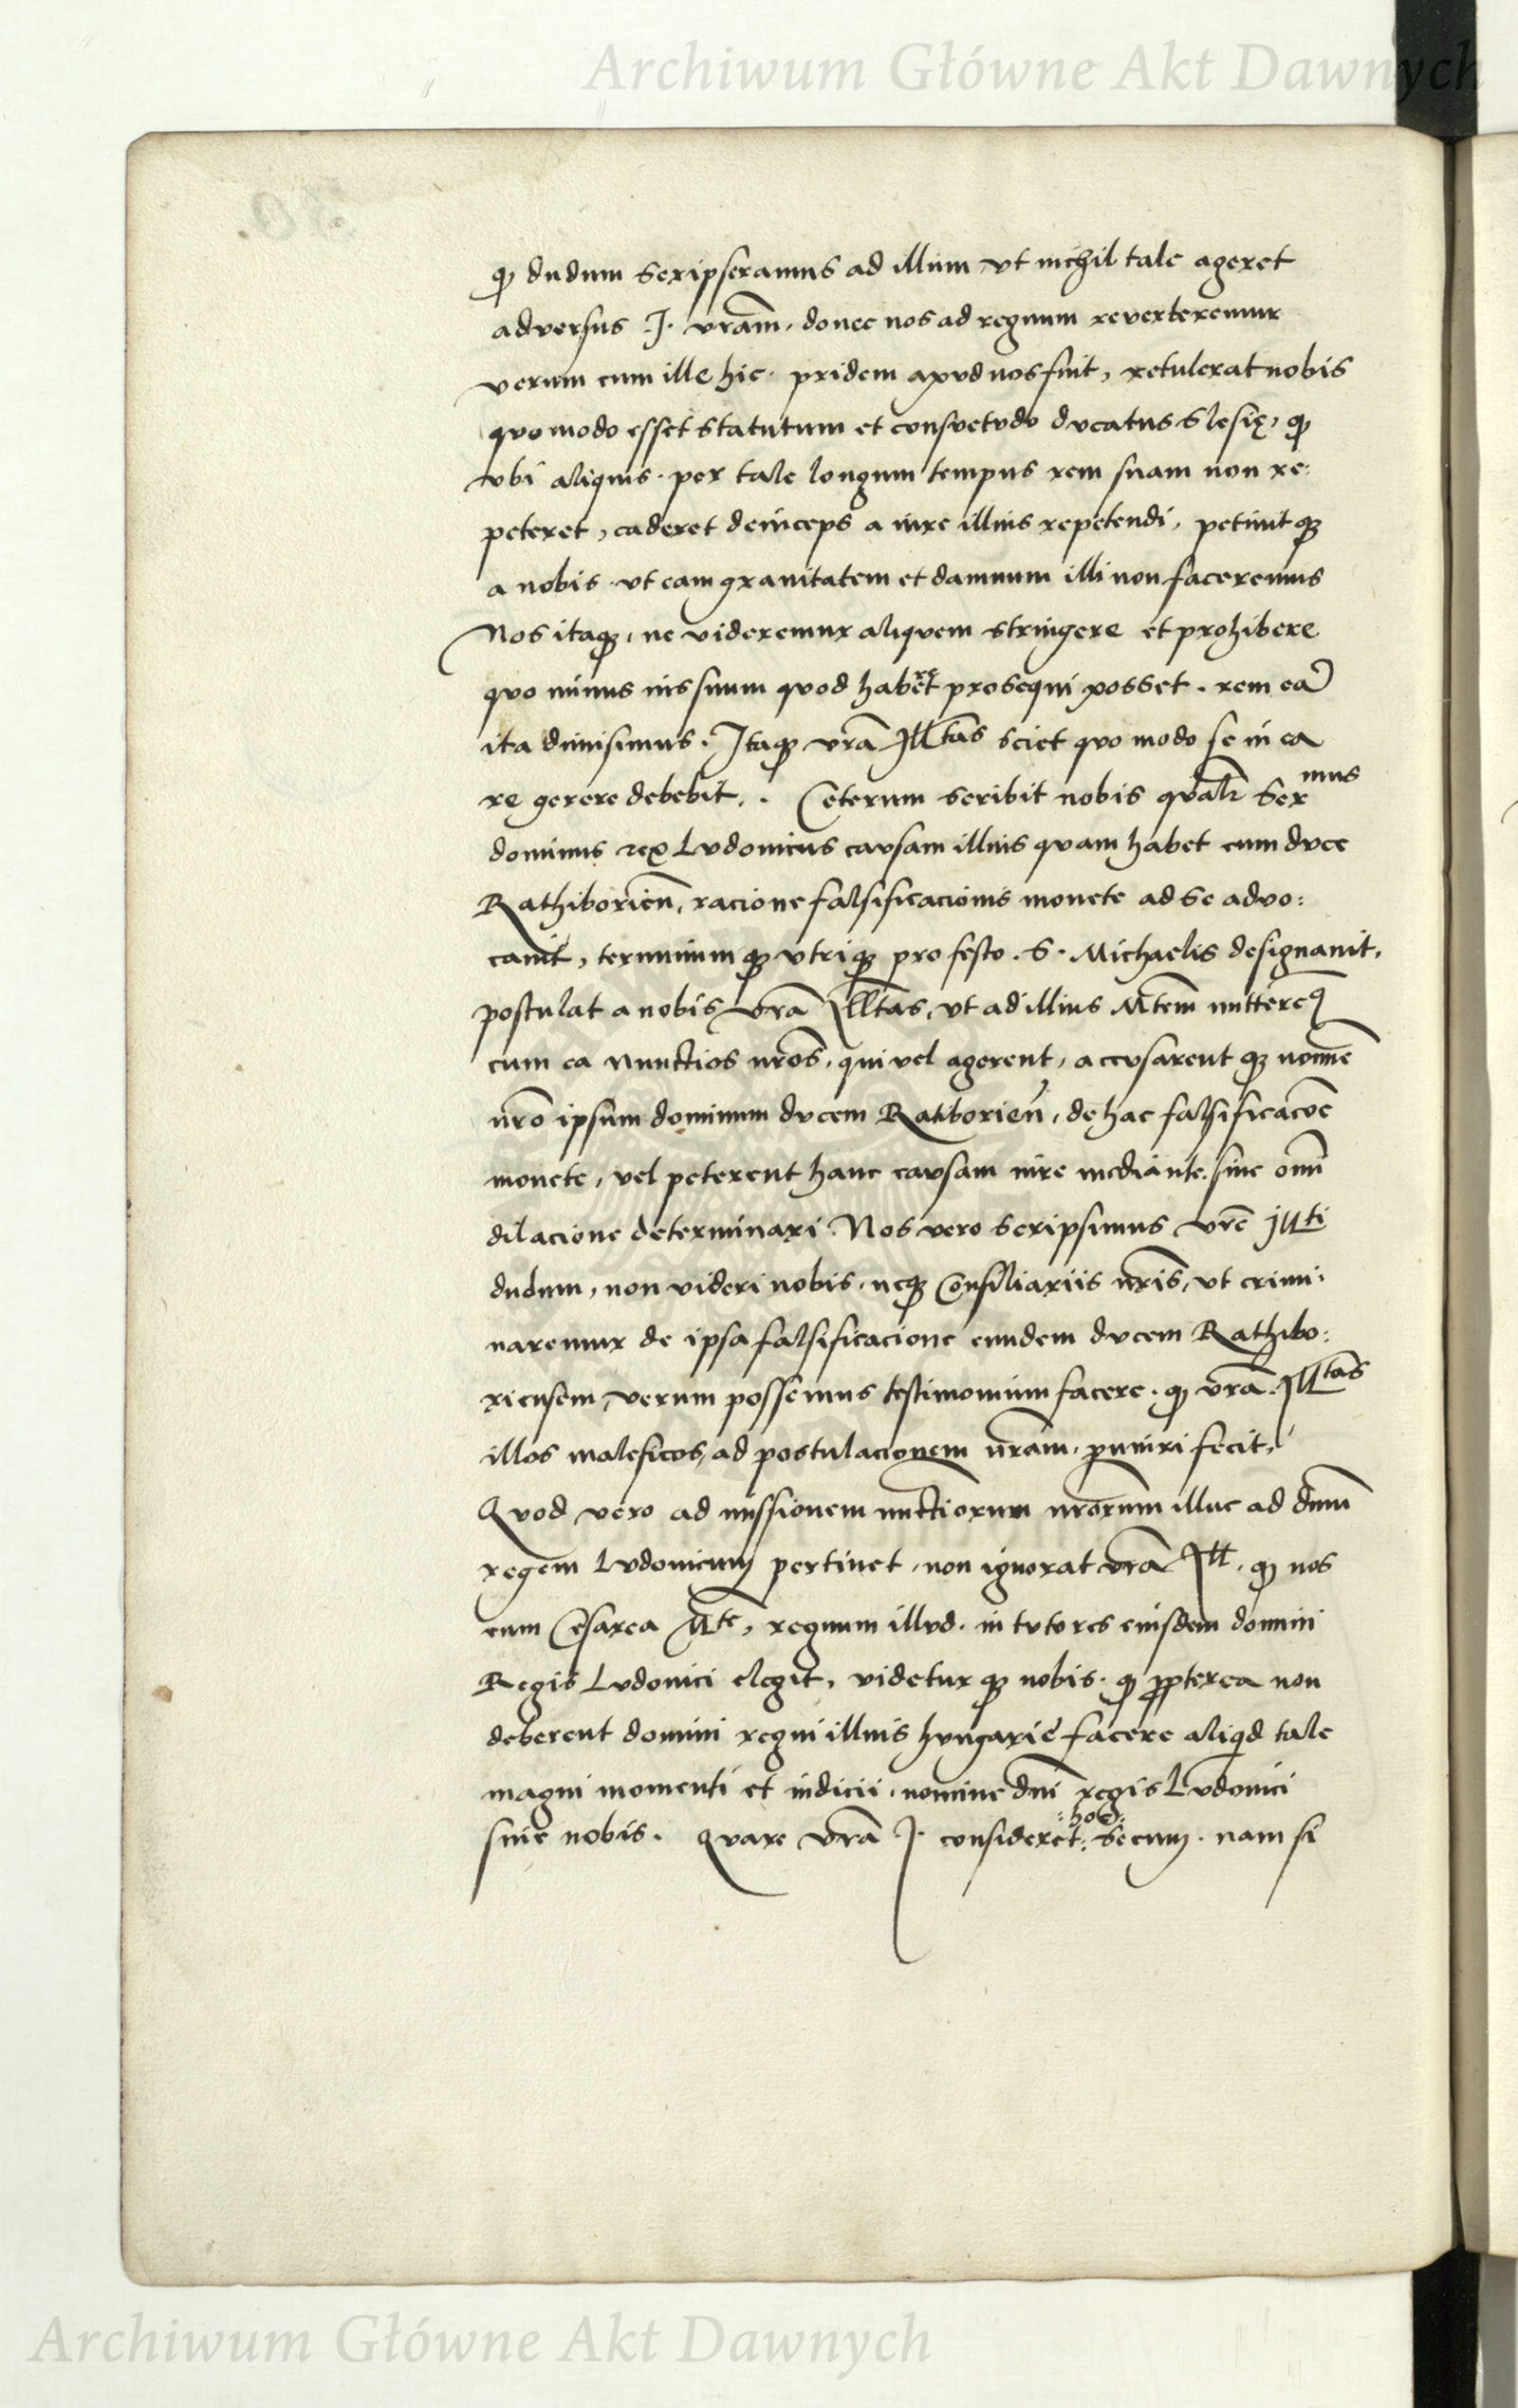 Archiwum Główne Akt Dawnych
qꝫ dudum scripseramus ad illum vt nichil tale ageret
adversus .J. vr̄am, donec nos ad regnum reverteremur
verum cum ille hic pridem apvd nos fuit, retulerat nobis
qvo modo esset statutum et consvetvdo dvcatus Slesię, qꝫ
vbi aliquis per tale longum tempus rem suam non re:
peteret, caderet deinceps a iure illius repetendi, petiuit qꝫ
a nobis vt eam grauitatem et damnum illi non faceremus
Nos itaqꝫ, ne videremur aliqvem stringere et prohibere
qvo minus ius suum qvod haberet prosequi posset. rem eā
ita dimisimus. Itaqꝫ vr̄a Jll̄tas sciet qvo modo se in ea
re gerere debebit. . Ceterum scribit nobis qvalr̄ Serᵐᵘˢ
dominus rex Lvdovicus cavsam illius qvam habet cum dvce
Rathiborień, racione falsificacionis monete ad se advo:
cauit, terminum qꝫ vtriqꝫ pro festo .S. Michaelis designauit,
postulat a nobis vr̄a Jll̄tas, vt ad illius Mtēm mitterēꝫ
cum ea nunctios nr̄os, qui vel agerent, accvsarent qꝫ noīne
nr̄o ipsum dominum dvcem Ratiborień, de hac falsificac̄oe
monete, vel peterent hanc cavsam iure mediante, sine om̄i
dilacione determinari. Nos vero scripsimus vr̄e Jllti
dudum, non videri nobis, neqꝫ Consiliariis nr̄is, vt crimi:
naremur de ipsa falsificacione eundem dvcem Rathibo:
riensem, verum possemus testimonium facere, qꝫ vr̄a. Jll̄tas
illos maleficos, ad postulacionem nr̄am, puniri fecit,
Qvod vero ad missionem nūctiorum nr̄orum illuc ad dn̄m
regem Lvdovicum pertinet, non ignorat vr̄a Jll. qꝫ nos
cum Cesarea Mte, regnum illvd. in tvtores eiusdem domini
Regis Lvdovici elegit, videtur qꝫ nobis. qꝫ ꝓpterea non
deberent domini regni illius hvngarie facere aliqid tale
magni momenti et iudicii, nomine dn̄i regis Lvdovici
:hoc:
sine nobis. Qvare vr̄a J. consideret: secum. nam si
Archiwum Główne Akt Dawnych